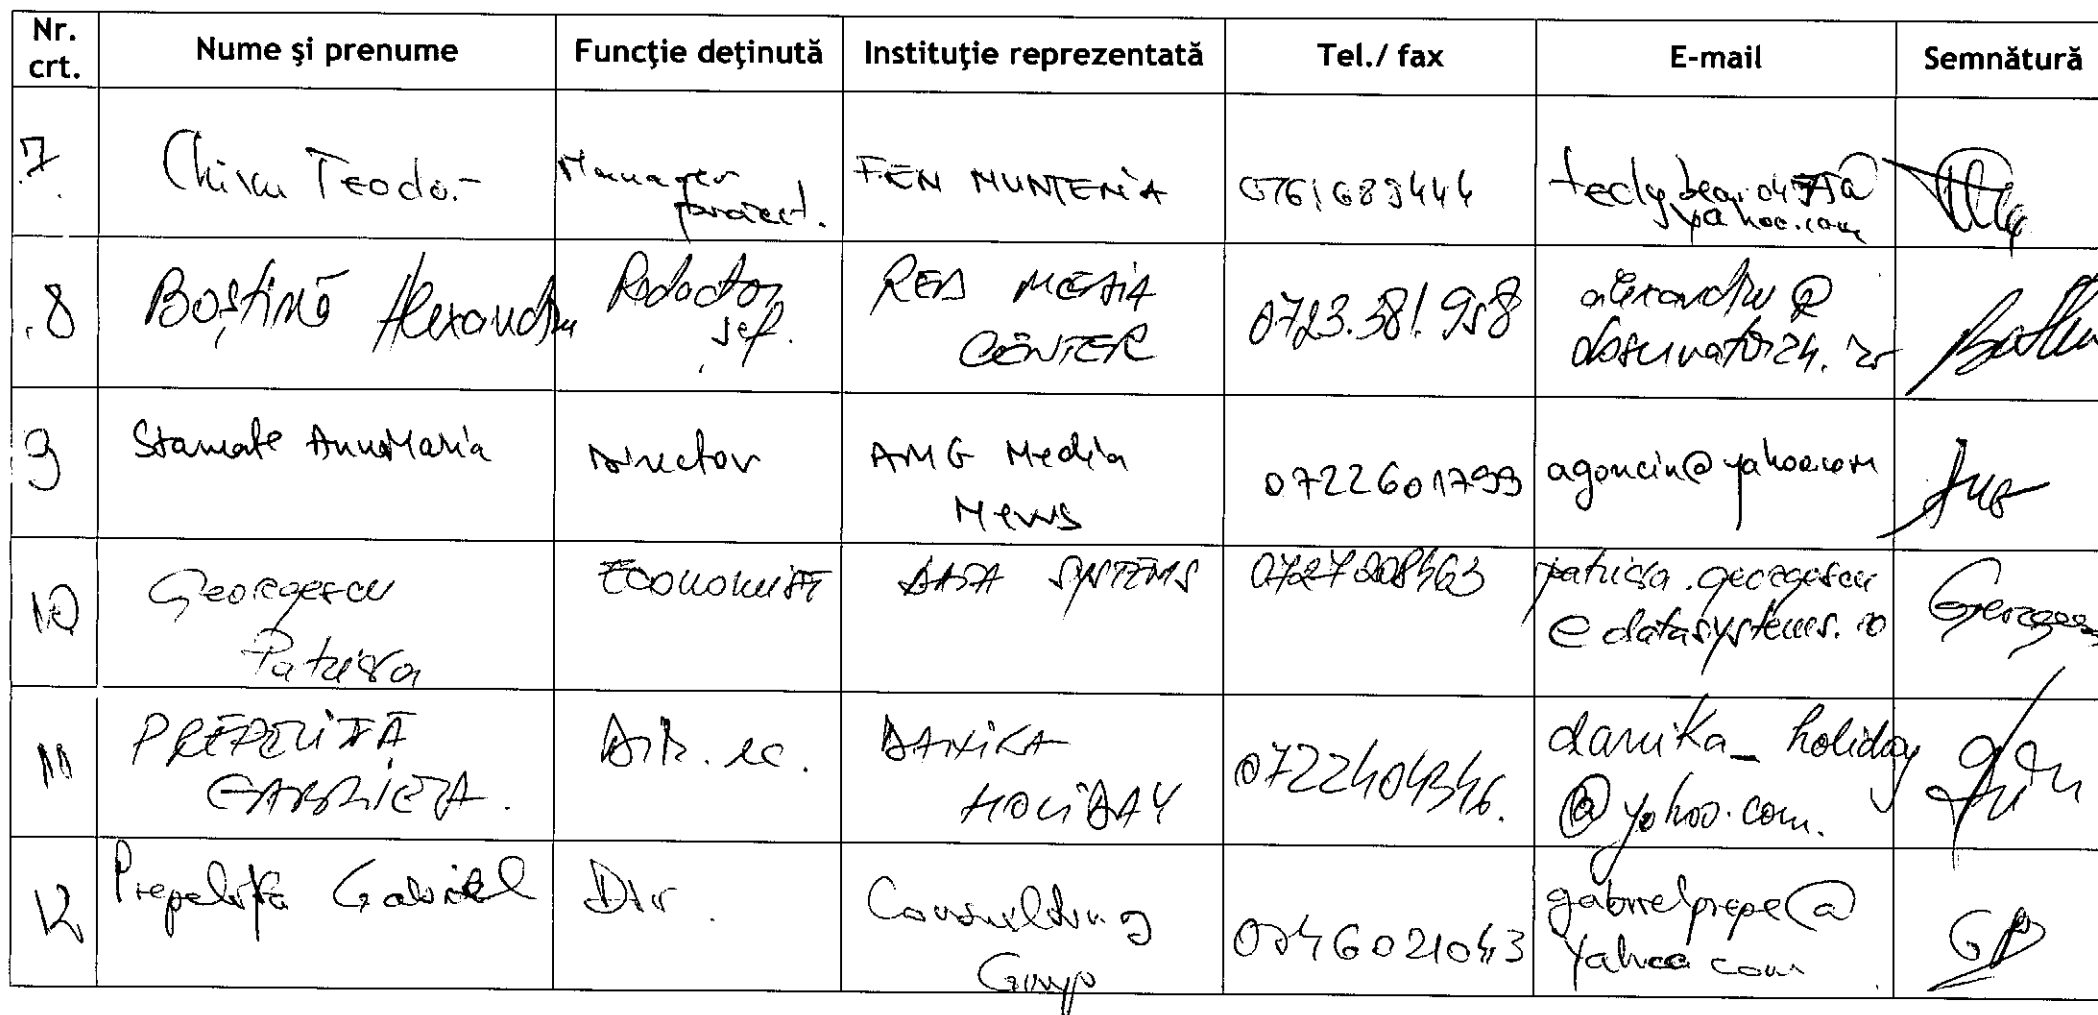 Nr. crt. Nume și prenume Funcţie deţinută Instituţie reprezentată Tel./ fax E-mail Semnătură
7. Chiru Teodor Manager proiect. FEN MUNTENIA 0761689444 yahoo.com
8 Boștină Alexandru Redactor șef. RED MEDIA CENTER 0723.381.958 alexandru@observator24.ro
9 Stamate AnnaMaria Director AMG Media News 0722601799 agoncin@yahoo.com
10 Georgescu Patricia ECONOMIST DATA SYSTEMS 0727208463 patricia.georgescu@datasystems.ro
11 PREPELIȚĂ GABRIELA. DIR. ec. DANIKA HOLIDAY 0722404346. danika_holiday@yahoo.com.
12 Prepeliță Gabriel Dir. Consulding Grup 0746021043 gabrielprepe@yahoo com